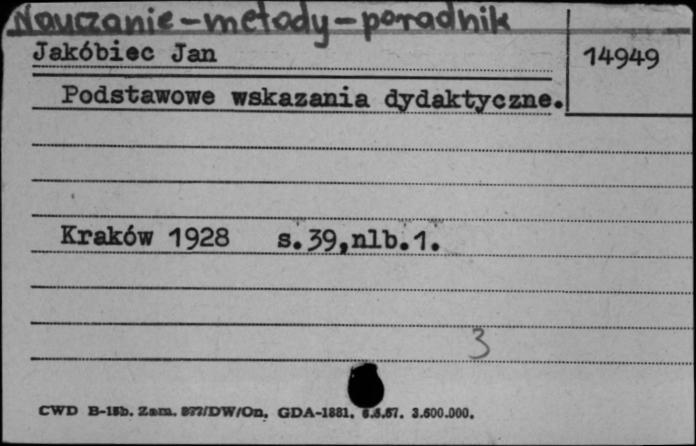 Nauczanie-metody-poradnik
Jakóbiec Jan
14949
Podstawowe wskazania dydaktyczne.
Kraków 1928 s.39,nlb.1.
3
CWD B-15b. Zam. 877/DW/On. GDA-1881. 6.6.67. 3.600.000.